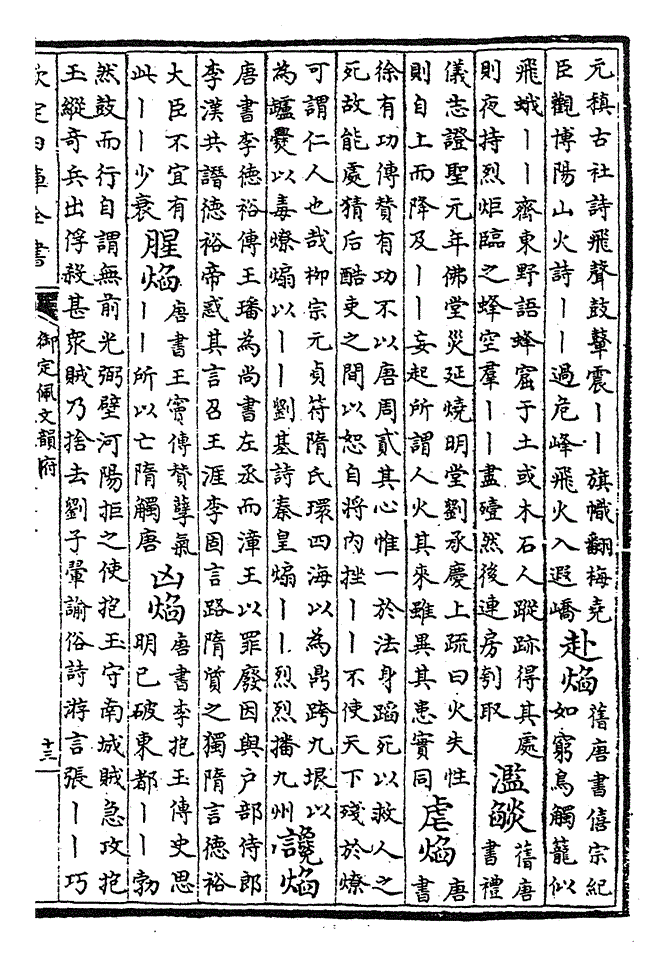 元稹古社詩飛聲鼓鼙震丨丨旗幟翻梅堯
臣觀博陽山火詩丨丨過危峰飛火入遐嶠
赴焰
舊唐書僖宗紀
如窮鳥觸籠似
飛蛾丨丨齊東野語蜂窟于土或木石人蹤跡得其處
則夜持烈炬臨之蜂空羣丨丨盡殪然後連房刳取
濫燄
舊唐
書禮
儀志證聖元年佛堂災延燒明堂劉承慶上疏曰火失性
則自上而降及丨丨妄起所謂人火其來雖異其患實同
虐焰
唐
書
徐有功傳贊有功不以唐周貳其心惟一於法身蹈死以救人之
死故能處猜后酷吏之間以恕自將內挫丨丨不使天下殘於燎
可謂仁人也哉柳宗元貞符隋氏環四海以為鼎跨九垠以
為爐爨以毒燎煽以丨丨劉基詩秦皇煽丨丨烈烈播九州
讒焰
唐書李德裕傳王璠為尚書左丞而漳王以罪廢因與戶部侍郎
李漢共譖德裕帝惑其言召王涯李固言路隋質之獨隋言德裕
大臣不宜有
此丨丨少衰
腥焰
唐書王竇傳贊孽氣
丨丨所以亡隋觸唐
凶焰
唐書李抱玉傳史思
明已破東都丨丨勃
然鼓而行自謂無前光弼壁河陽拒之使抱玉守南城賊急攻抱
玉縱奇兵出俘殺甚衆賊乃捨去劉子翬諭俗詩游言張丨丨巧
欽定四庫全書
御定佩文韻府
十三